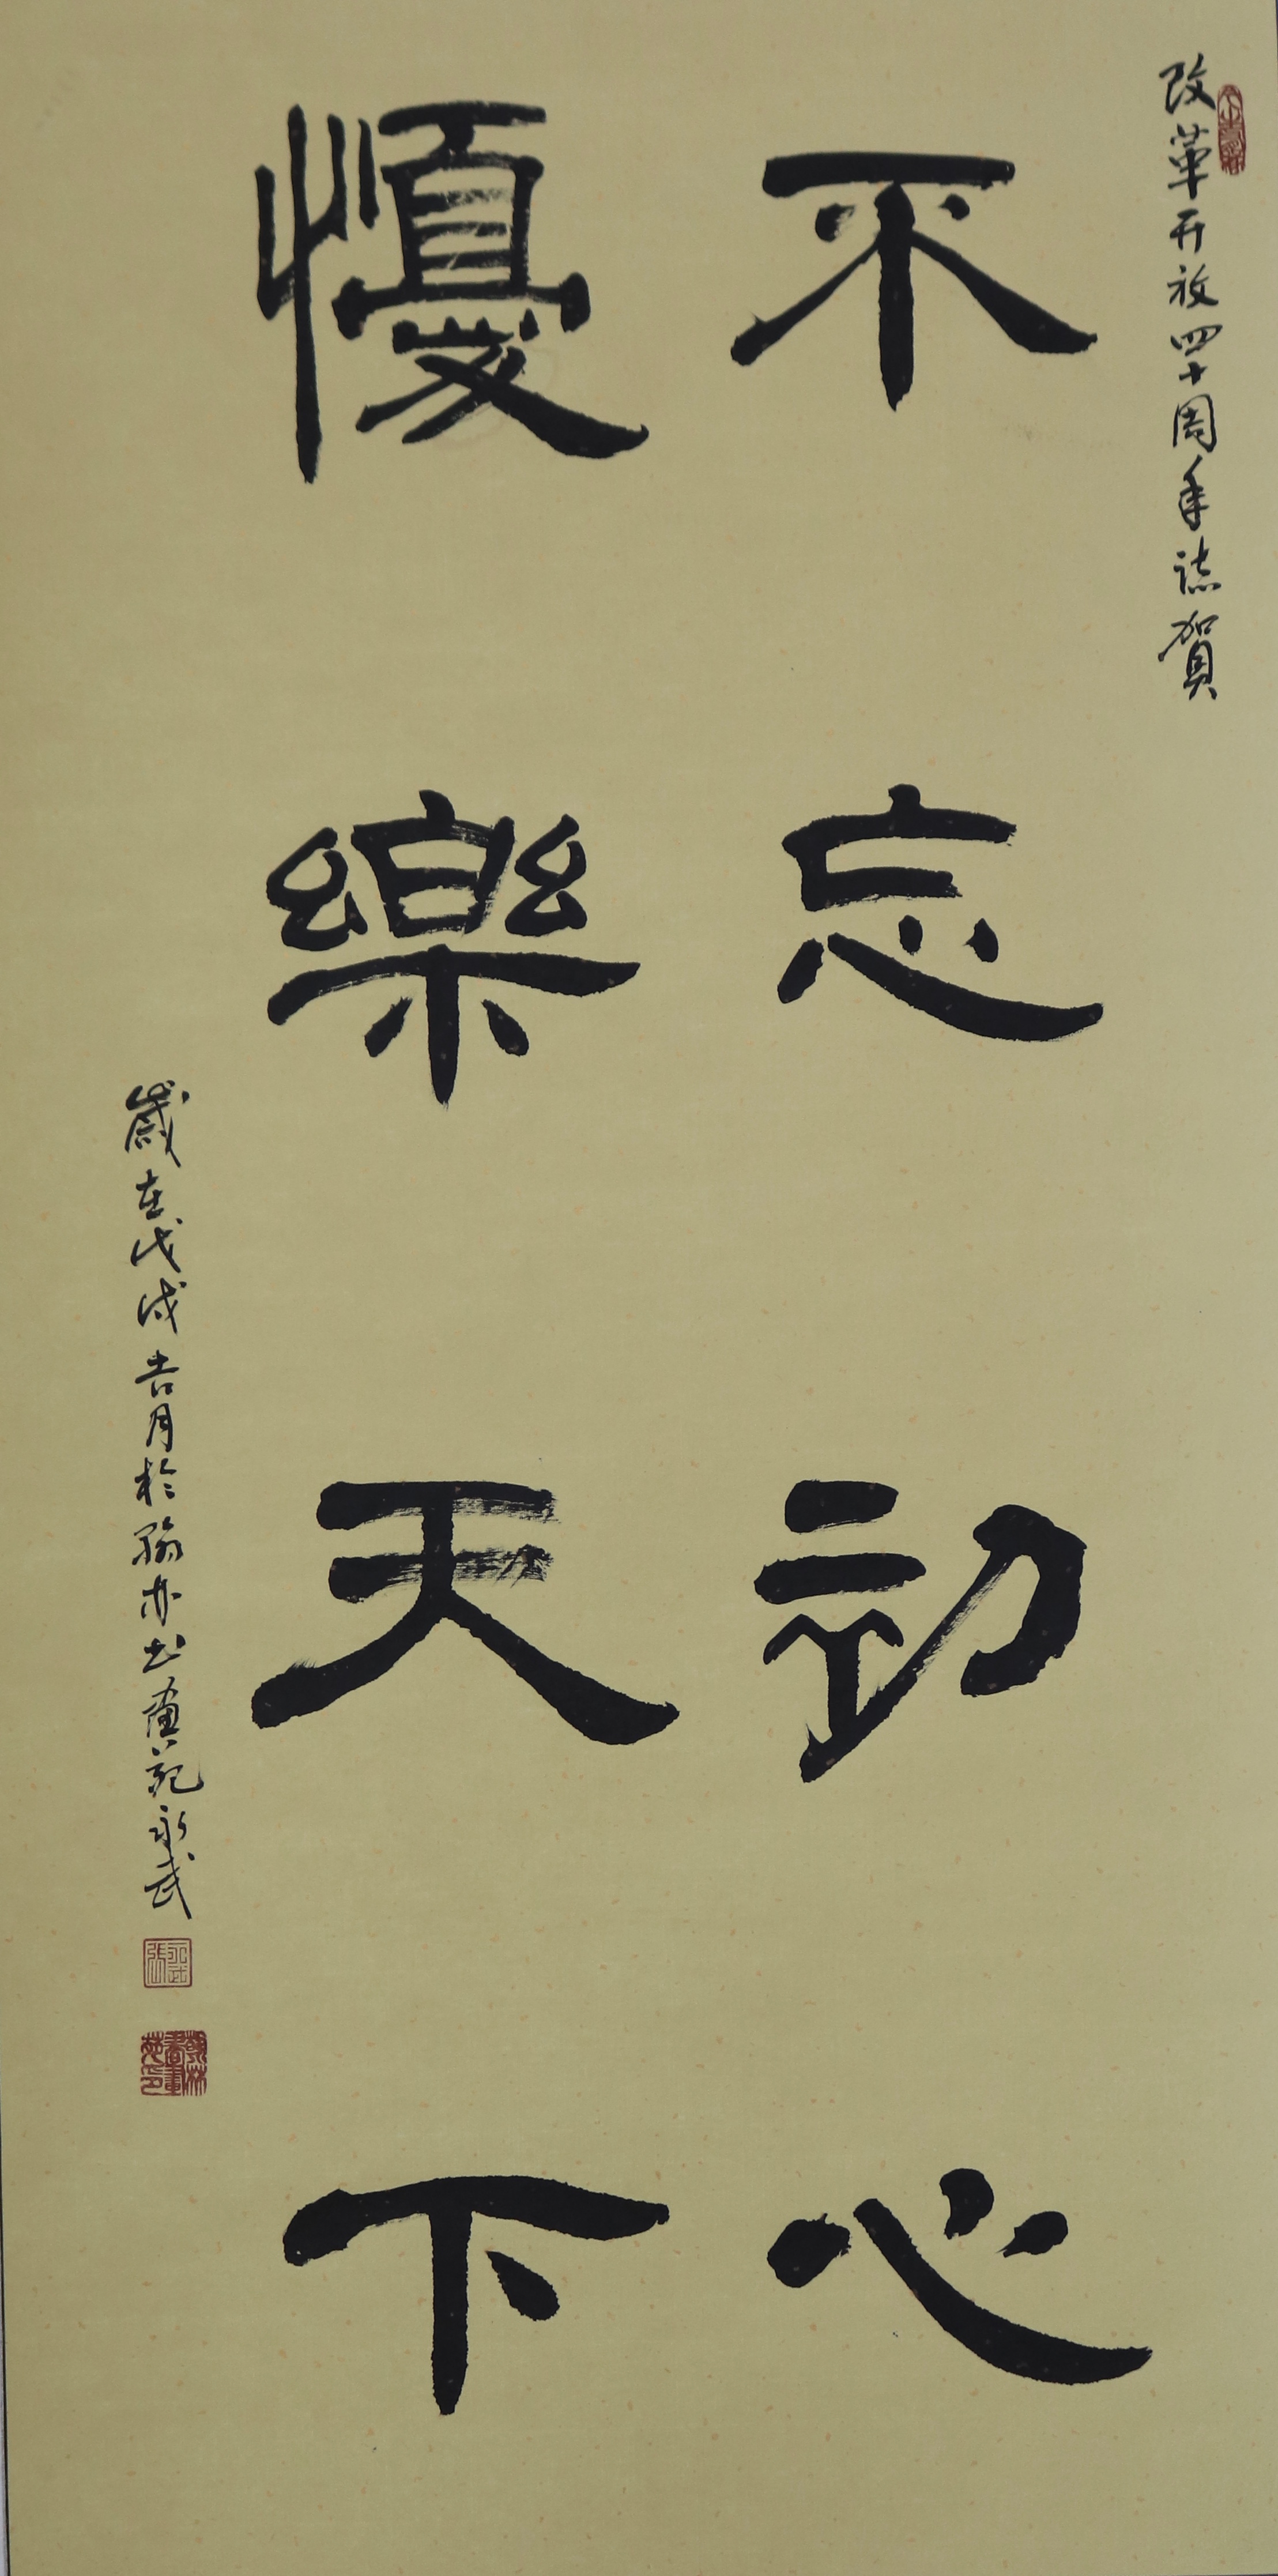 改革开放四十周年誌賀
不忘初心
懮樂天下
歲在戊戌吉月於翰亦书畫苑永武